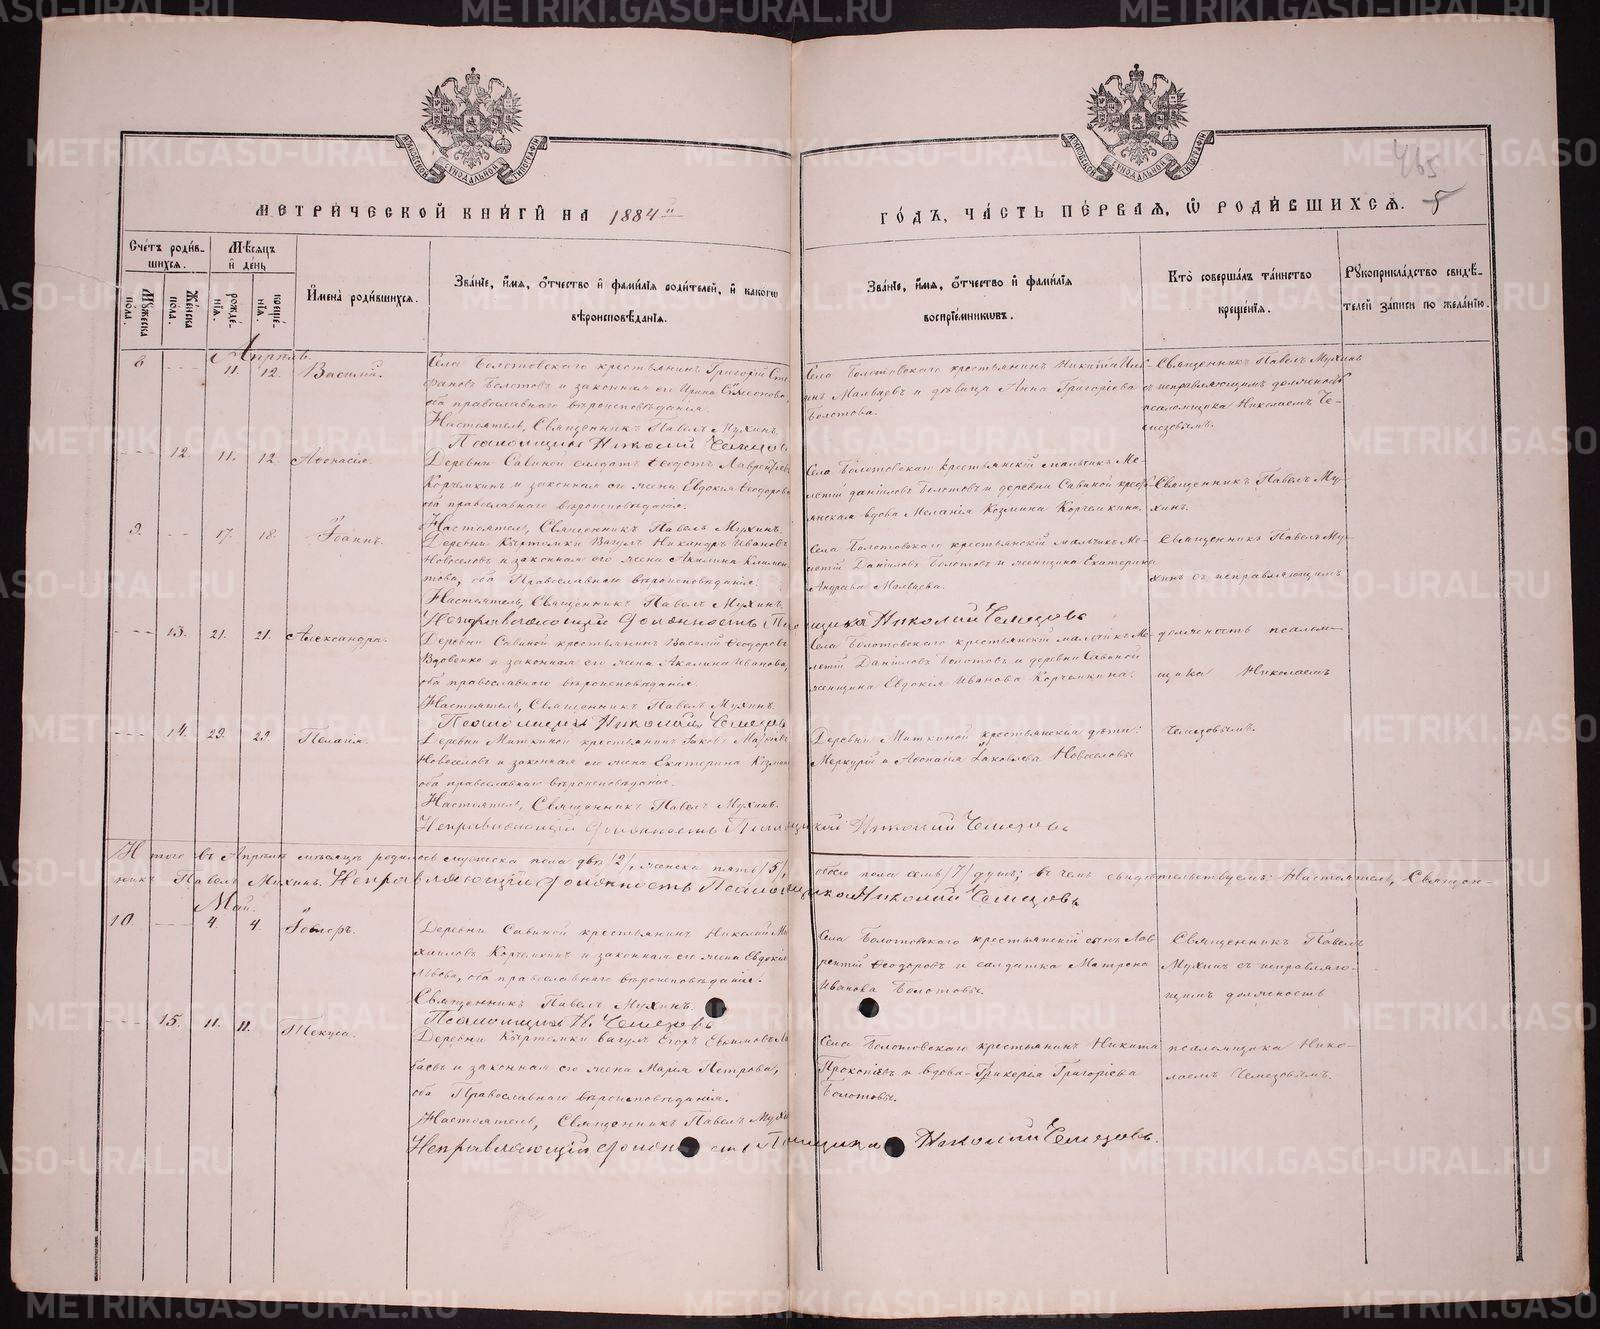 465
5
МОСКОВСКОЙ СѴНОДАЛЬНОЙ ТИПОГРАФІИ
МОСКОВСКОЙ СѴНОДАЛЬНОЙ ТИПОГРАФІИ
МЕТРИЧЕСКОЙ КНИГИ НА 1884 й
ГОДЪ, ЧАСТЬ ПЕРВАЯ, Ѡ РОДИВШИХСЯ.
Счетъ родив-
шихся.
Мужеска пола.
Женска пола.
Мѣсяцъ и день
рожде-
нія.
креще-
нія.
Имена родившихся.
Званіе, имя, отчество и фамилія родителей, и какогѡ
вѣроисповѣданія.
Званіе, имя, отчество и фамилія
воспріемниковъ.
Кто совершалъ таинство
крещенія.
Рукоприкладство свидѣ-
телей записи по желанію.
Апрѣль.
8 11. 12. Василій.
Села Болотовского крестьянинъ Григорій Сте-
фановъ Болотовъ и законная его Ирина Сѵмеонова,
оба православнаго вѣроисповѣданія.
Настоятель, Священникъ Павелъ Мухинъ.
Псаломщикъ Николай Чемезовъ
Села Болотовского крестьянинъ Никита
Мальцевъ и дѣвица Анна Григоріева
Болотова.
Священникъ Павелъ Мухинъ
съ исправляющимъ должность
псаломщика Николаемъ Че-
мезовымъ.
12. 11. 12. Аѳонасія.
Деревни Савиной солдатъ Ѳеодотъ Лаврентіевъ
Корчемкинъ и законная его жена Евдокія Ѳеодорова
оба православнаго вѣроисповѣданія.
Настоятель, Священникъ Павелъ Мухинъ.
Села Болотовскаго крестьянскій мальчикъ Ме-
летій Даніиловъ Болотовъ и деревни Савиной крест-
янская вдова Меланія Козмина Корчемкина.
Священникъ Павелъ Му-
хинъ.
9. 17. 18. Іоаннъ.
Деревни Кыртомки Вагулъ Никандръ Ивановъ
Новоселовъ и законная его жена Акилина Климен-
това, оба Православнаго вѣроисповѣданія.
Настоятель, Священникъ Павелъ Мухинъ.
Исправляющій должность Псаломщика Николай Чемезовъ
Села Болотовского крестьянскій мальчикъ Ме-
летій Даніиловъ Болотовъ и женщина Екатерина
Андреева Мальцева.
Священникъ Павелъ Му-
хинъ съ исправляющимъ
13. 21. 21. Александра.
Деревни Савиной крестьянинъ Василій Ѳеодоровъ
Вдовенко и законная его жена Акилина Иванова,
оба православнаго вѣроисповѣданія.
Настоятель, Священникъ Павелъ Мухинъ.
Псаломщикъ Николай Чемезовъ
Села Болотовского крестьянскій мальчикъ Ме-
летій Даніиловъ Болотовъ и деревни Савиной
женщина Евдокія Иванова Корчемкина.
должность псалом-
щика Николаемъ
14. 29. 29. Пелагія.
Деревни Миткиной крестьянинъ Іаковъ
Новоселовъ и законная его жена Екатерина Козмина
оба православнаго вѣроисповѣданія.
Настоятель, Священникъ Павелъ Мухинъ.
Исправляющій должность Псаломщика Николай Чемезовъ
Деревни Миткиной крестьянскія дѣти:
Меркурій и Аѳонасія Іаковлевы Новоселовы
Чемезовымъ.
Итого въ Апрѣлѣ мѣсяцѣ родилось мужеска пола два /2/, женска пять /5/, обоего пола семь /7/ душъ; въ чемъ свидѣтельствуемъ: Настоятель, Священ-
никъ Павелъ Мухинъ. Исправляющій должность Псаломщика Николай Чемезовъ
Май.
10. 4. 4.
Деревни Савиной крестьянинъ Николай Ми-
хаиловъ Корчемкинъ и законная его жена Евдокія
Львова, оба православнаго вѣроисповѣданія.
Священникъ Павелъ Мухинъ.
Псаломщикъ Н. Чемезовъ
Села Болотовского крестьянскій сынъ Лав-
рентій Ѳеодоровъ и солдатка Матрона
Иванова Болотовы.
Священникъ Павелъ
Мухинъ съ исправляю-
щимъ должность
15. 11. 11. Текуса.
Деревни Кыртомки вагулъ Егоръ Евѳимовъ
и законная его жена Марія Петрова,
оба Православнаго вѣроисповѣданія.
Настоятель, Священникъ Павелъ Мухинъ
Исправляющій должность Псаломщика Николай Чемезовъ.
Села Болотовского крестьянинъ Никита
Прокопіевъ и вдова Гликерія Григоріева
Болотовы.
псаломщика Нико-
лаемъ Чемезовымъ.
METRIKI.GASO-URAL.RU